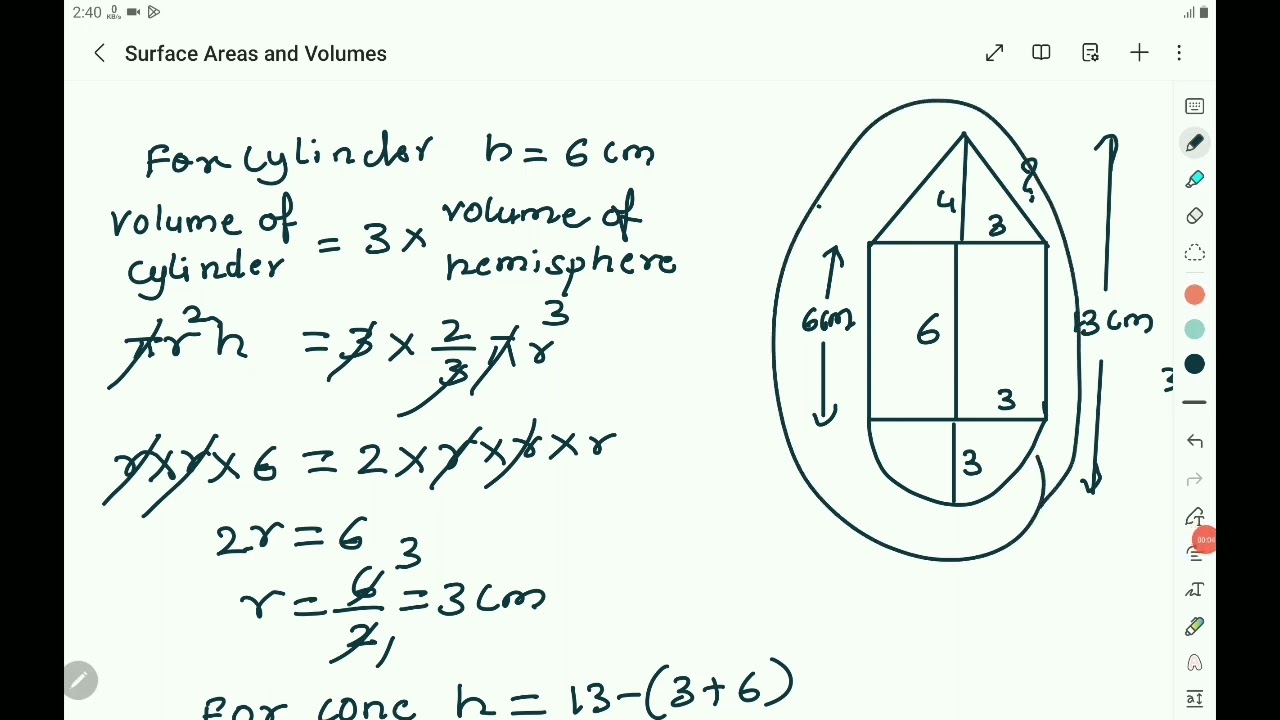 2:40 0 KB/s
Surface Areas and Volumes
For cylinder h = 6 cm
volume of cylinder = 3 × volume of hemisphere
πr²h = 3 × 2/3 πr³
r × r × 6 = 2 × r × r × r
2r = 6
r = 6/2 = 3 cm
3
For cone h = 13 - (3 + 6)
4
3
6cm
6
13 cm
3
3
00:04